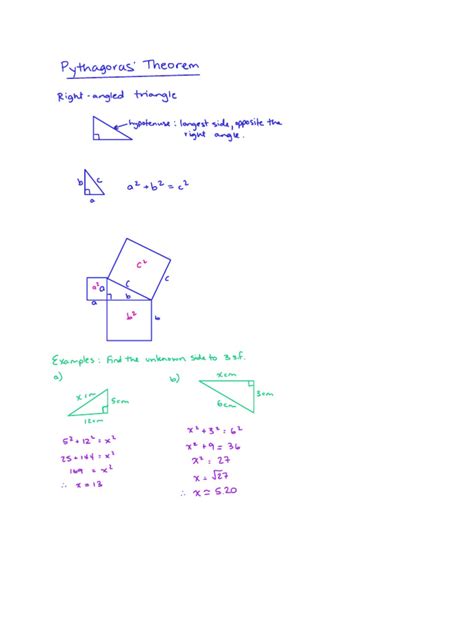 Pythagoras' Theorem
Right-angled triangle
hypotenuse: longest side, opposite the
right angle.
b c
a
a² + b² = c²
c²
a² a c c
a b
b² b
Examples: Find the unknown side to 3 s.f.
a)
x cm
5cm
12cm
5² + 12² = x²
25 + 144 = x²
169 = x²
∴ x = 13
b)
x cm
3cm
6cm
x² + 3² = 6²
x² + 9 = 36
x² = 27
x = √27
∴ x ≃ 5.20